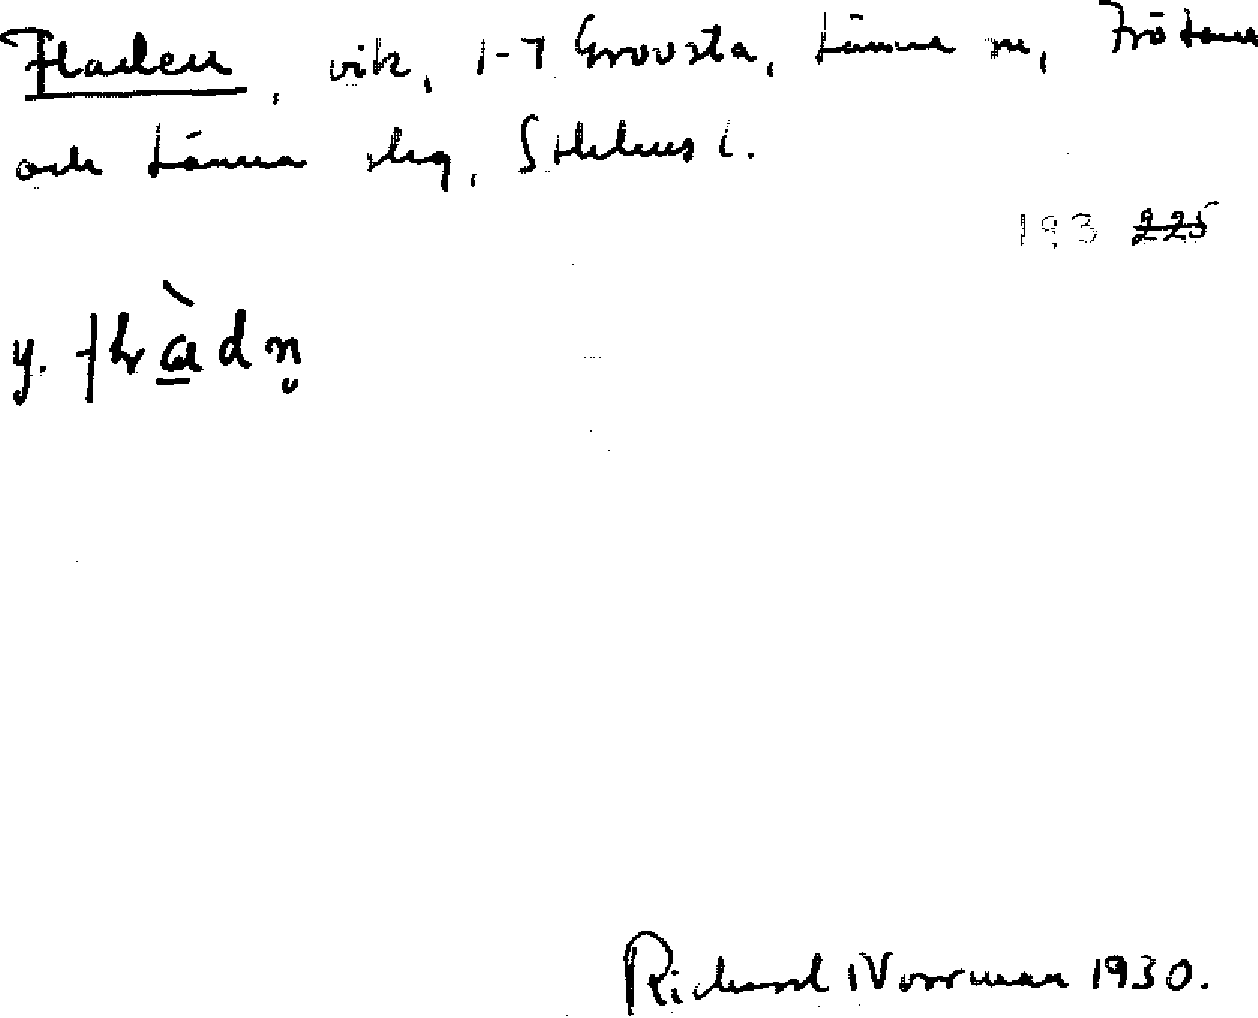 Fladen, vik, 1-7 Grovsta, Länna sn, Frötuna
och Länna slg, Sthlms l.
193 225
y. flàdn̥
Richard Norrman 1930.